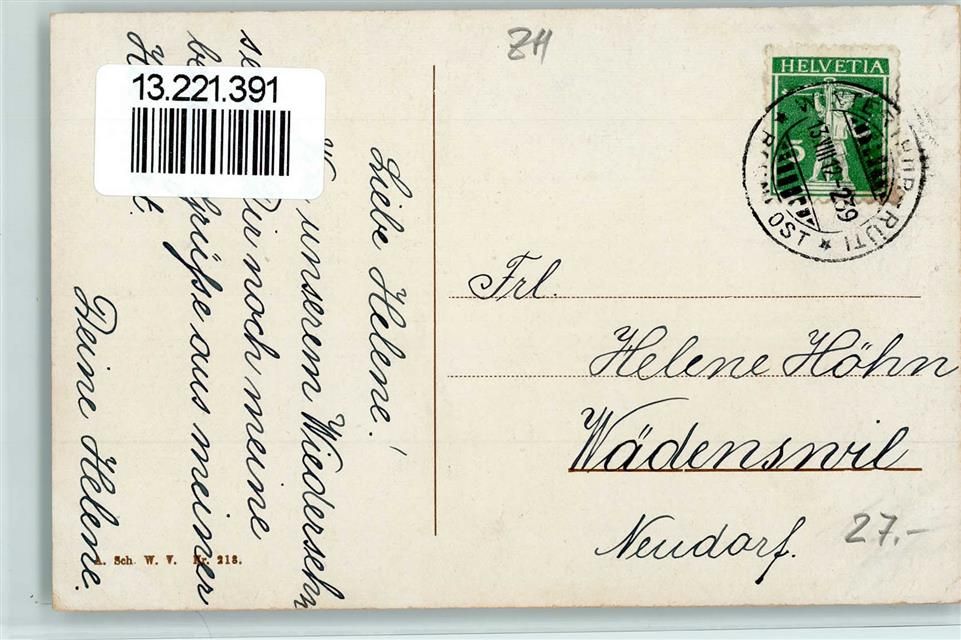 13.221.391
ZH
HELVETIA
5
WINTERTHUR-RÜTI
13.VIII.12-239
OST
Liebe Helene!
unserem Wiedersehn
Dir noch meine
grüsse aus meiner
Deine Helene.
Frl.
Helene Höhn
Wädenswil
Neudorf.
27.-
A. Sch. W. V. Nr. 218.